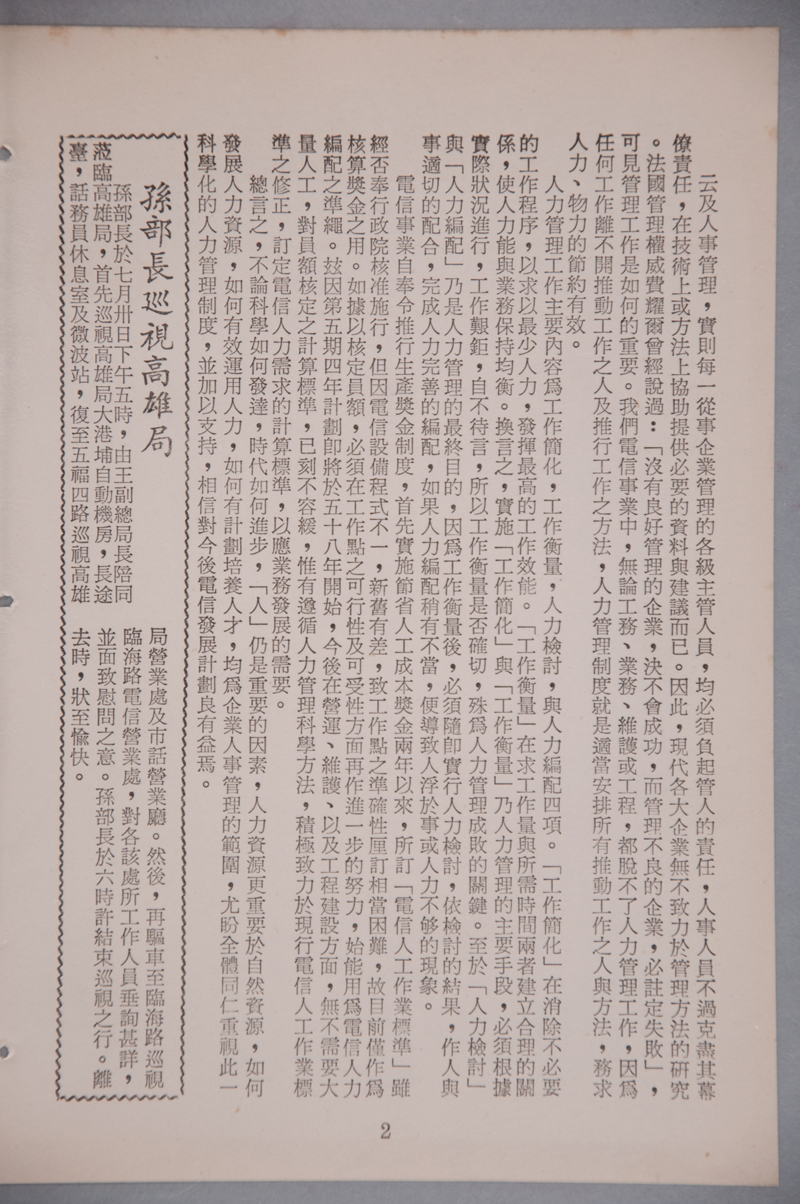 云及人事管理，實則每一從事企業管理的各級主管人員，均必須負起管人的責任，人事人員不過克盡其幕
僚責任，在技術上或方法上協助提供必要的資料與建議而已。因此，現代各大企業無不致力於管理方法的研究
。法國管理權威費耀爾曾經說過：「沒有良好管理的企業，決不會成功，而管理不良的企業，必註定失敗」，
可見管理工作是如何的重要。我們電信事業中，無論工務、業務、維護或工程，都脫不了人力管理工作，因爲
任何工作離不開推動工作之人及推行工作之方法，人力管理制度就是適當安排所有推動工作之人與方法，務求
人力、物力的節約有效。
人力管理工作主要內容爲工作簡化，工作衡量，人力檢討，與人力編配四項。「工作簡化」在消除不必要
的工作程序，以求以最少人力，發揮最高的工作效能。「工作衡量」在求工作量與所需時間兩者建立合理的關
係，使人力能與業務保持均衡。換言之，實施「工作簡化」與「工作衡量」乃人力管理的主要手段，必須根據
實際狀況進行，工作艱鉅，自不待言，所以工作衡量是否確切，殊爲人力管理成敗的關鍵。至於「人力檢討」
與「人力編配」乃是人力管理的最終目的，因爲工作衡量後，必須隨卽實行人力檢討，依檢討的結果，作人與
事適切的配合，完成人力完善的編配，如果人力編配稍有不當，便導致人浮於事或人力不够的現象。
電信事業自奉令推行生產獎金制度，首先實施節省人工成本獎金兩年以來，所訂「電信人工作業標準」雖
經否奉行政院核准施行，但因電信設備程式不一，新舊有差，致工作點之準確性厘訂相當困難，故目前僅作爲
核算獎金之用。如據以核定員額，必須在工作點之可行性及可受性方面再作進一步的努力，始能用爲電信人力
編配之準繩。茲因第五期四年計劃卽將於五十八年開始，今後在營運、維護、以及工程建設方面，無不需要大
量人工，對員額核定之計算標準，已刻不容緩，惟有遵循人力管理科學方法，積極致力於現行電信人工作業標
準之修正，訂定電信人力需求的計算標準，以應業務發展的需要。
總言之，不論科學如何發達，時代如何進步，「人」仍是重要的因素，人力資源更重要於自然資源，如何
發展人力資源，如何有效運用人力，如何有計劃培養人才，均爲企業人事管理的範圍，尤盼全體同仁重視此一
科學化的人力管理制度，並加以支持，相信對今後電信發展計劃良有益焉。
孫部長巡視高雄局
孫部長於七月卅日下午五時，由王副總局長陪同
蒞臨高雄局，首先巡視高雄局大港埔自動機房，長途
臺，話務員休息室及微波站，復至五福四路巡視高雄
局營業處及市話營業廳。然後，再驅車至臨海路巡視
臨海路電信營業處，對各該處所工作人員垂詢甚詳，
並面致慰問之意。孫部長於六時許結束巡視之行。離
去時，狀至愉快。
2